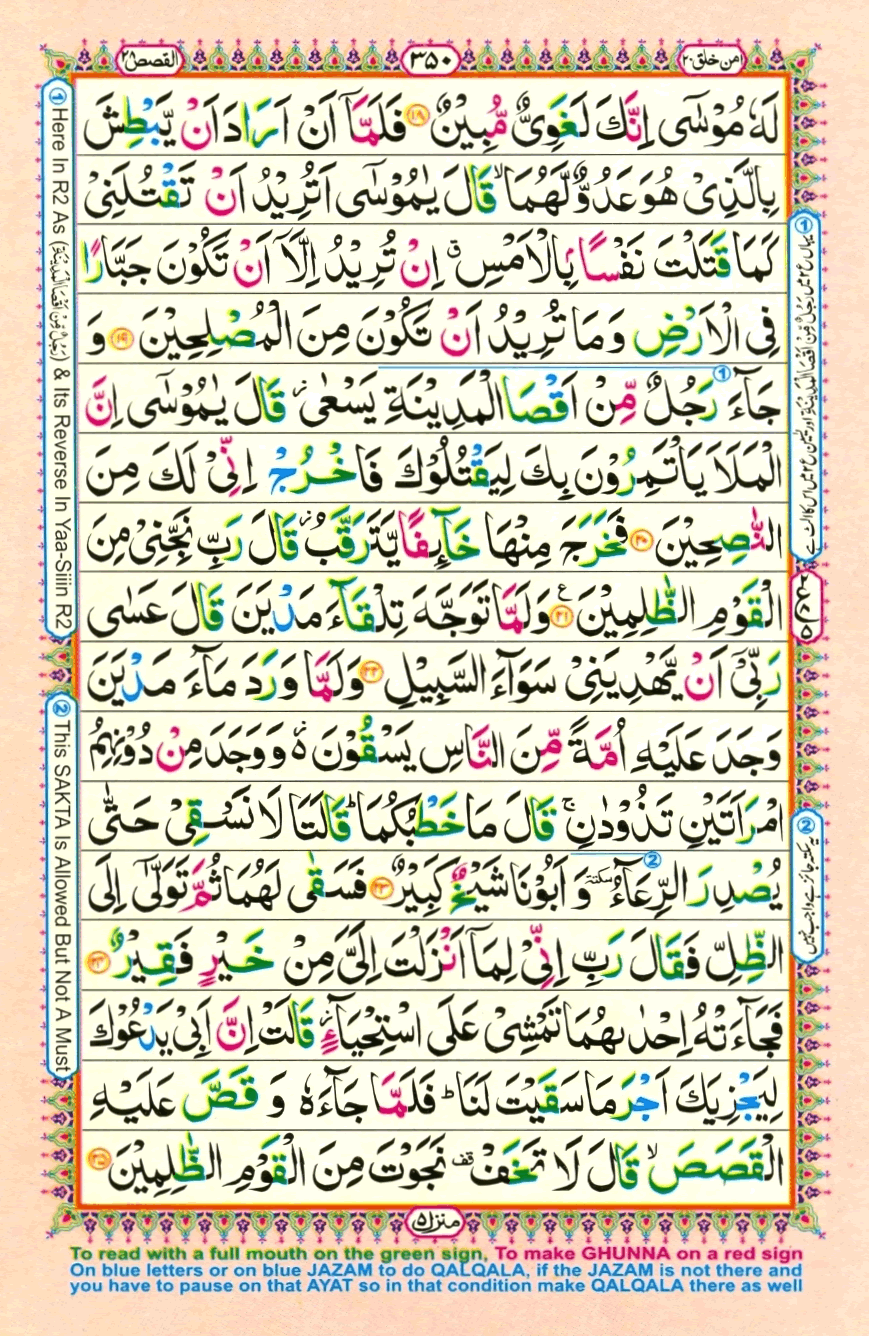 امن خلق ٢٠
٣٥٠
القصص ٢٨
لَهٗ مُوْسٰۤى اِنَّكَ لَغَوِىٌّ مُّبِيْنٌ ﴿١٨﴾ فَلَمَّاۤ اَنْ اَرَادَ اَنْ يَّبْطِشَ
بِالَّذِىْ هُوَ عَدُوٌّ لَّهُمَا ۙ قَالَ يٰمُوْسٰۤى اَتُرِيْدُ اَنْ تَقْتُلَنِىْ
كَمَا قَتَلْتَ نَفْسًۢا بِالْاَمْسِ ۖ اِنْ تُرِيْدُ اِلَّاۤ اَنْ تَكُوْنَ جَبَّارًا
فِى الْاَرْضِ وَمَا تُرِيْدُ اَنْ تَكُوْنَ مِنَ الْمُصْلِحِيْنَ ﴿١٩﴾ وَ
جَآءَ رَجُلٌ مِّنْ اَقْصَا الْمَدِيْنَةِ يَسْعٰى ؗ قَالَ يٰمُوْسٰۤى اِنَّ
الْمَلَاَ يَاْتَمِرُوْنَ بِكَ لِيَقْتُلُوْكَ فَاخْرُجْ اِنِّىْ لَكَ مِنَ
النّٰصِحِيْنَ ﴿٢٠﴾ فَخَرَجَ مِنْهَا خَآئِفًا يَّتَرَقَّبُ ؗ قَالَ رَبِّ نَجِّنِىْ مِنَ
الْقَوْمِ الظّٰلِمِيْنَ ﴿٢١﴾ ع وَلَمَّا تَوَجَّهَ تِلْقَآءَ مَدْيَنَ قَالَ عَسٰى
رَبِّىْۤ اَنْ يَّهْدِيَنِىْ سَوَآءَ السَّبِيْلِ ﴿٢٢﴾ وَلَمَّا وَرَدَ مَآءَ مَدْيَنَ
وَجَدَ عَلَيْهِ اُمَّةً مِّنَ النَّاسِ يَسْقُوْنَ ۬ٗ وَوَجَدَ مِنْ دُوْنِهِمُ
امْرَاَتَيْنِ تَذُوْدٰنِ ۚ قَالَ مَا خَطْبُكُمَا ؕ قَالَتَا لَا نَسْقِىْ حَتّٰى
يُصْدِرَ الرِّعَآءُ سكتة وَاَبُوْنَا شَيْخٌ كَبِيْرٌ ﴿٢٣﴾ فَسَقٰى لَهُمَا ثُمَّ تَوَلّٰۤى اِلَى
الظِّلِّ فَقَالَ رَبِّ اِنِّىْ لِمَاۤ اَنْزَلْتَ اِلَىَّ مِنْ خَيْرٍ فَقِيْرٌ ﴿٢٤﴾
فَجَآءَتْهُ اِحْدٰىهُمَا تَمْشِىْ عَلَى اسْتِحْيَآءٍ ؗ قَالَتْ اِنَّ اَبِىْ يَدْعُوْكَ
لِيَجْزِيَكَ اَجْرَ مَا سَقَيْتَ لَنَا ؕ فَلَمَّا جَآءَهٗ وَ قَصَّ عَلَيْهِ
الْقَصَصَ ۙ قَالَ لَا تَخَفْ قف نَجَوْتَ مِنَ الْقَوْمِ الظّٰلِمِيْنَ ﴿٢٥﴾
① Here In R2 As (رَجُلٌ مِّنْ اَقْصَا الْمَدِيْنَةِ) & Its Reverse In Yaa-Siiin R2
② This SAKTA Is Allowed But Not A Must
① یہاں ع ۲ میں رَجُلٌ مِّنْ اَقْصَا الْمَدِيْنَةِ اور یٰسین ع ۲ میں اس کا الٹ ہے
② یہ سکتہ جائز ہے واجب نہیں
منزل ۵
To read with a full mouth on the green sign, To make GHUNNA on a red sign
On blue letters or on blue JAZAM to do QALQALA, if the JAZAM is not there and
you have to pause on that AYAT so in that condition make QALQALA there as well